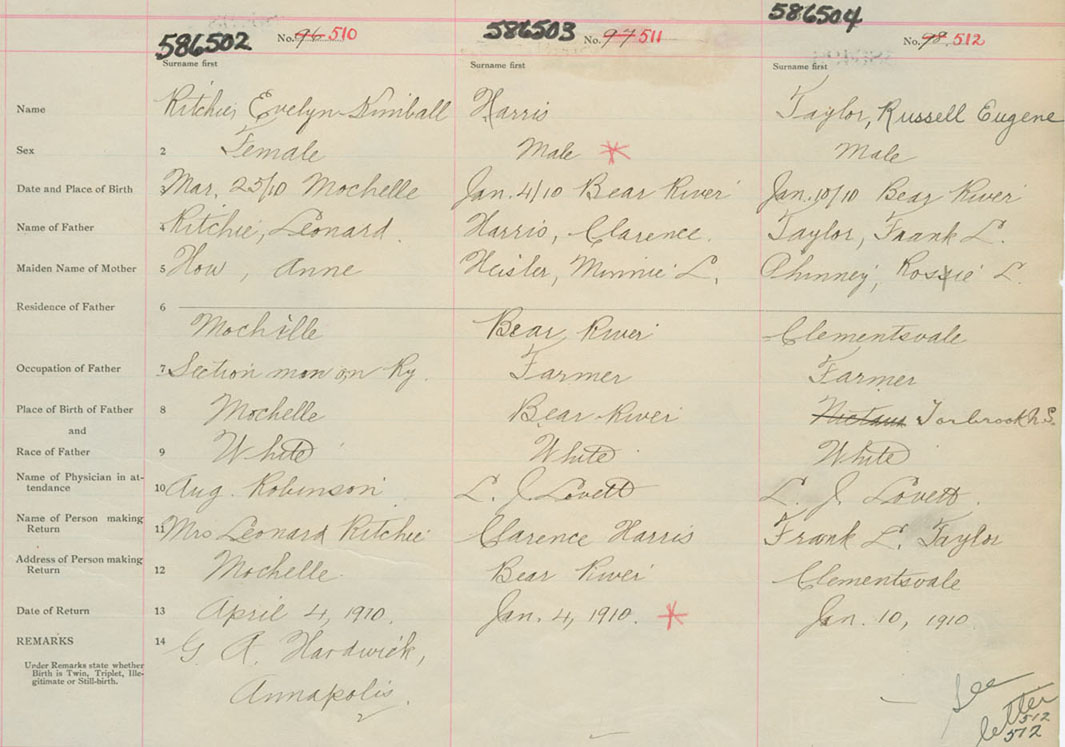 586502 No. 96 510 586503 No. 97 511 586504 No. 98 512
Surname first Surname first Surname first
Name Ritchie, Evelyn Kimball Harris Taylor, Russell Eugene
Sex 2 Female Male * Male
Date and Place of Birth 3 Mar. 25/10 Mochelle Jan. 4/10 Bear River Jan. 10/10 Bear River
Name of Father 4 Ritchie, Leonard. Harris, Clarence. Taylor, Frank L.
Maiden Name of Mother 5 How, Anne Heisler, Minnie L. Phinney, Rossie L.
Residence of Father 6
Mochelle Bear River Clementsvale
Occupation of Father 7 Section man on Ry. Farmer Farmer
Place of Birth of Father 8 Mochelle Bear River Nictaux Torbrook N.S.
and
Race of Father 9 White White White
Name of Physician in at-
tendance 10 Aug. Robinson L. J. Lovett L. J. Lovett.
Name of Person making
Return 11 Mrs Leonard Ritchie Clarence Harris Frank L. Taylor
Address of Person making
Return 12 Mochelle. Bear River Clementsvale
Date of Return 13 April 4, 1910. Jan. 4, 1910. * Jan. 10, 1910
REMARKS 14 G. A. Hardwick,
Under Remarks state whether
Birth is Twin, Triplet, Ille-
gitimate or Still-birth.
Annapolis.
See
letter
512
512